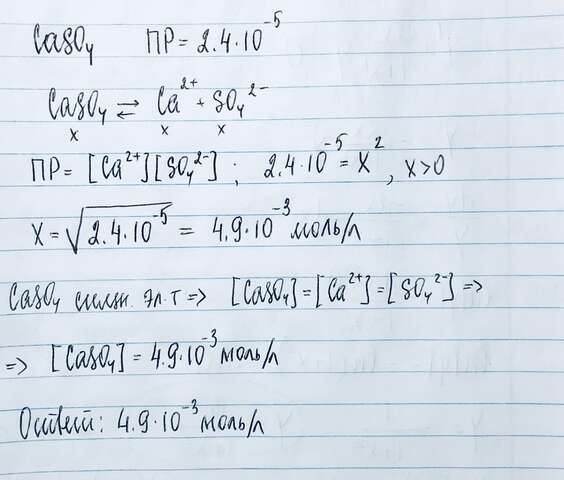 CaSO₄ ПР = 2.4·10⁻⁵
CaSO₄ ⇄ Ca²⁺ + SO₄²⁻
x x x
ПР = [Ca²⁺][SO₄²⁻] ; 2.4·10⁻⁵ = X², x>0
X = √2.4·10⁻⁵ = 4.9·10⁻³ моль/л
CaSO₄ сильн. эл-т => [CaSO₄] = [Ca²⁺] = [SO₄²⁻] =>
=> [CaSO₄] = 4.9·10⁻³ моль/л
Ответ: 4.9·10⁻³ моль/л